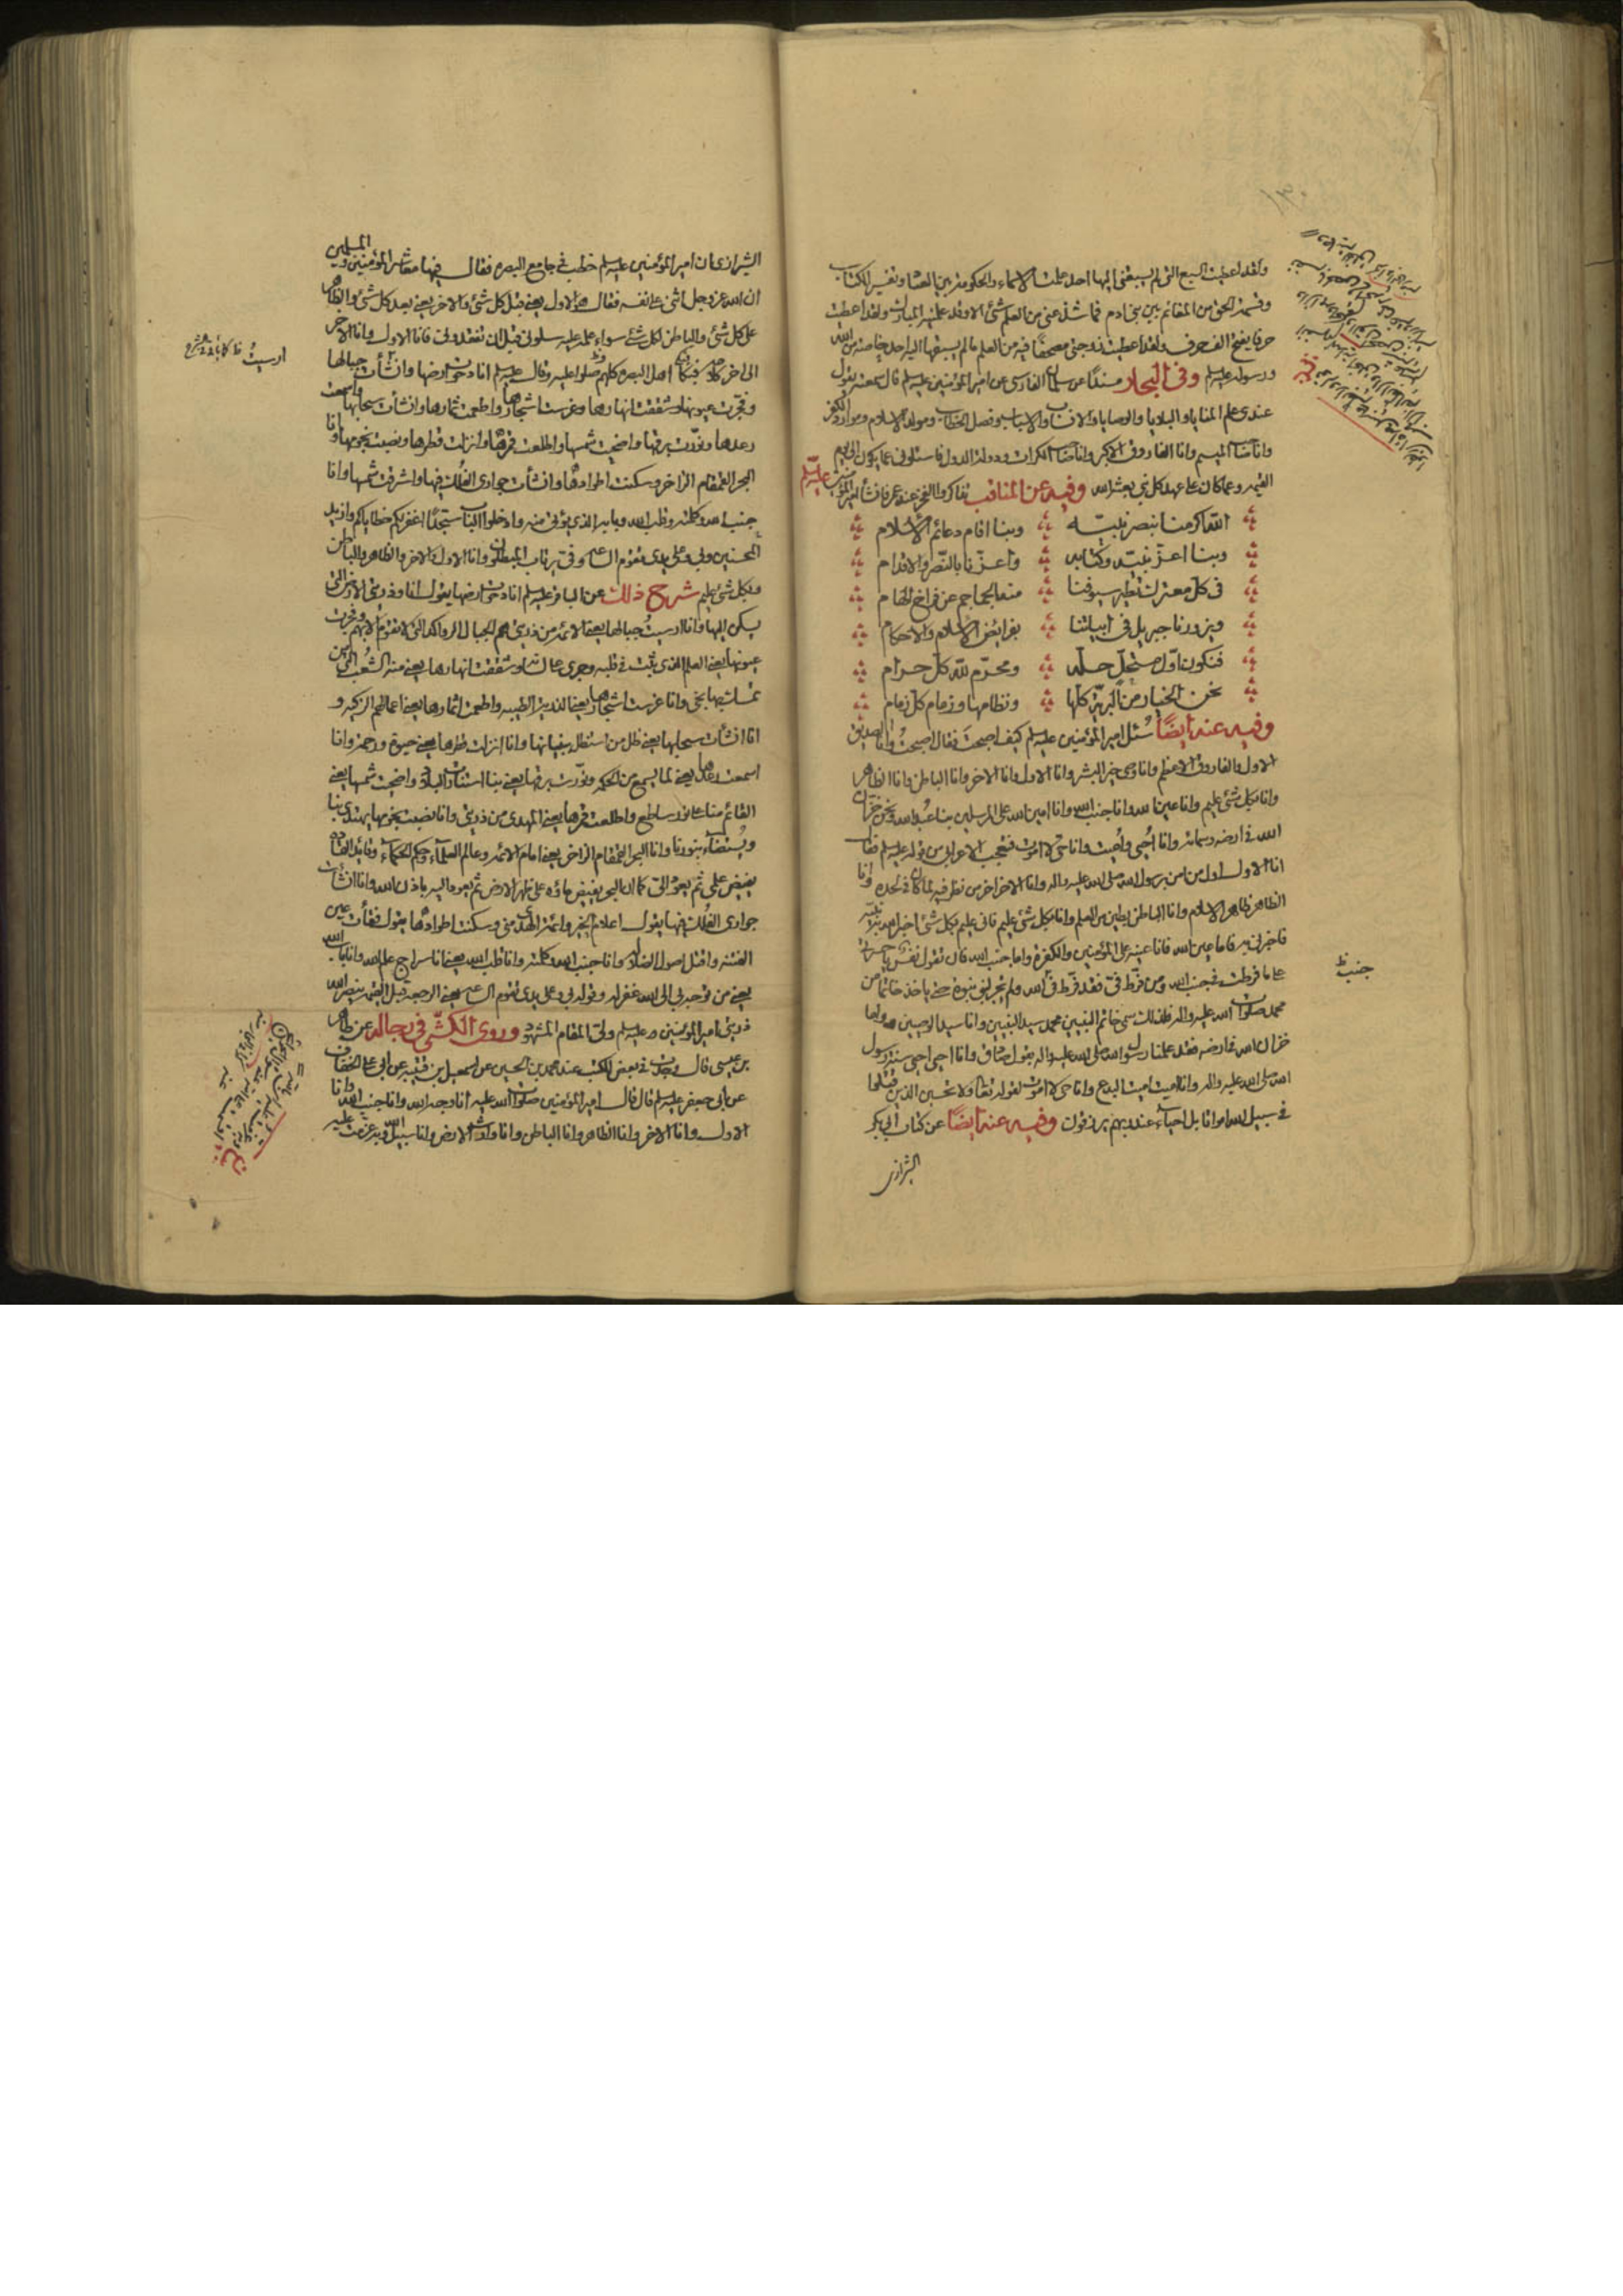 ولقد اعطيت السبع التى لم يسبقنى اليها احد علمت الاسماء والحكومة بين العباد وتفسير الكتاب
وقسمة الحق من المغانم بين بنى ادم فما شذ عنى من العلم شئ الا وقد علمنيه المبارك ولقد اعطيت
حرفا يفتح الف حرف ولقد اعطيت زوجتى مصحفا فيه من العلم ما لم يسبقها اليه احد خاصة من الله
ورسوله عليه السلم وفى البحار مسندا عن سلمان الفارسى عن امير المؤمنين عليه السلم قال سمعته يقول
عندى علم المنايا والبلايا والوصايا والانساب والاسباب وفصل الخطاب ومولد الاسلام وموارد الكفر
وانا صاحب الميسم وانا الفاروق الاكبر وانا صاحب الكرات ودولة الدول فاسئلونى عما يكون الى يوم
القيمة وعما كان على عهد كل نبى بعثه الله وفيه عن المناقب تفاكروا الفخر عند عمر فانشأ امير المؤمنين عليه السلم
الله اكرمنا بنصر نبيه وبنا اقام دعائم الاسلام
وبنا اعز نبيه وكتابه واعزنا بالنصر والاقدام
فى كل معترك تطير سيوفنا منه الجماجم عن فراخ الهام
ويزورنا جبريل فى ابياتنا بفرائض الاسلام والاحكام
فنكون اول مستحل حله ومحرم لله كل حرام
نحن الخيار من البرية كلها ونظامها وزمام كل زمام
وفيه عنه ايضا سئل امير المؤمنين عليه السلم كيف اصبحت فقال اصبحت وانا الصديق
الاول والفاروق الاعظم وانا وصى خير البشر وانا الاول وانا الاخر وانا الباطن وانا الظاهر
وانا بكل شئ عليم وانا عين الله وانا جنب الله وانا امين الله على المرسلين بنا عبد الله ونحن خزان
الله فى ارضه وسمائه وانا احيى واميت وانا حى لا اموت فتعجب الاعرابى من قوله عليه السلم فقال
انا الاول اول من امن برسول الله صلى الله عليه واله وانا الاخر اخر من نظر فيه لما كان فى لحده وانا
الظاهر ظاهر الاسلام وانا الباطن بطين من العلم وانا بكل شئ عليم فانى عليم بكل شئ اخبر الله به نبيه
فاخبرنى به فاما عين الله فانا عينه على المؤمنين والكفرة واما جنب الله فان تقول نفس يا حسرتى
على ما فرطت فى جنب الله ومن فرط فى فقد فرط فى الله ولم يجز لنبى نبوة حتى ياخذ خاتما من
محمد صلوات الله عليه واله فلذلك سمى خاتم النبيين محمد سيد النبيين وانا سيد الوصيين واما
خزان الله فى ارضه فقد علمنا رسول الله صلى الله عليه واله بقول صادق وانا احيى احيى سنة رسول
الله صلى الله عليه واله وانا اميت اميت البدع وانا حى لا اموت لقوله تعالى ولا تحسبن الذين قتلوا
فى سبيل الله امواتا بل احياء عند ربهم يرزقون وفيه عنه ايضا عن كتاب ابى بكر
الشيرازى
جنب ظ
الشيرازى ان امير المؤمنين عليه السلم خطب فى جامع البصرة فقال فيها معاشر المؤمنين والمسلمين
ان الله عز وجل اثنى على نفسه فقال هو الاول يعنى قبل كل شئ والاخر يعنى بعد كل شئ والظاهر
على كل شئ والباطن لكل شئ سواء علمه عليه سلونى قبل ان تفقدونى فانا الاول وانا الاخر
الى اخر كلامه فبكى اهل البصرة كلهم وصلوا عليه وقال عليه السلم انا دحوت ارضها وانشأت جبالها
وفجرت عيونها وشققت انهارها وغرست اشجارها واطعمت ثمارها وانشأت سحابها واسمعت
رعدها ونورت برقها واضحيت شمسها واطلعت قمرها وانزلت قطرها ونصبت نجومها وانا
البحر القمقام الزاخر وسكنت اطوادها وانشأت جوارى الفلك فيها واشرقت شمسها وانا
جنب الله وكلمته وقلب الله وبابه الذى يؤتى منه وادخلوا الباب سجدا اغفر لكم خطاياكم وازيد
المحسنين وبى وعلى يدى تقوم الساعة وفى يرتاب المبطلون وانا الاول والاخر والظاهر والباطن
وبكل شئ عليم شرح ذلك عن الباقر عليه السلم انا دحوت ارضها يقول انا وذريتى الارض التى
يسكن اليها وانا ارسيت جبالها يعنى الائمة من ذريتى هم الجبال الرواكد التى لا تقوم الا بهم وفجرت
عيونها يعنى العلم الذى ثبت فى قلبه وجرى على لسانه وشققت انهارها يعنى منه الشعب الذى من
تمسك بها نجى وانا غرست اشجارها يعنى الذرية الطيبة واطعمت اثمارها يعنى اعمالهم الزكية و
انا انشأت سحابها يعنى ظل من استظل ببنيانها وانا انزلت قطرها يعنى حيوة ورحمة وانا
اسمعت رعدها يعنى لما يسمع من الحكمة ونورت برقها يعنى بنا استنارت البلاد واضحيت شمسها يعنى
القائم منا على نور ساطع واطلعت قمرها يعنى المهدى من ذريتى وانا نصبت نجومها يهتدى بنا
ويستضاء بنورنا وانا البحر القمقام الزاخر يعنى انا امام الائمة وعالم العلماء وحكم الحكماء وقائد القادة
يفيض علمى ثم يعود الى كما ان البحر يفيض ماؤه على ظهر الارض ثم يعود اليه باذن الله وانا انشأت
جوارى الفلك فيها يقول اعلام الخير وائمة الهدى منى وسكنت اطوادها يقول فقأت عين
الفتنة واقتل اصول الضلالة وانا جنب الله وكلمته وانا قلب الله يعنى انا سراج علم الله وانا باب الله
يعنى من توجه بى الى الله غفر له وقوله بى وعلى يدى تقوم الساعة يعنى الرجعة قبل القيمة ينصر الله
ذريتى امير المؤمنين عليه السلم ولى المقام المشهود وروى الكشى فى رجاله عن طاهر
بن عيسى قال وجدت فى بعض الكتب عن محمد بن الحسين عن اسمعيل بن قتيبة عن ابى العلا الخفاف
عن ابى جعفر عليه السلم قال قال امير المؤمنين صلوات الله عليه انا وجه الله وانا جنب الله وانا
الاول وانا الاخر وانا الظاهر وانا الباطن وانا وارث الارض وانا سبيل الله وبه عزمت عليه
ارسيت ظ كما يأتى فى الشرح